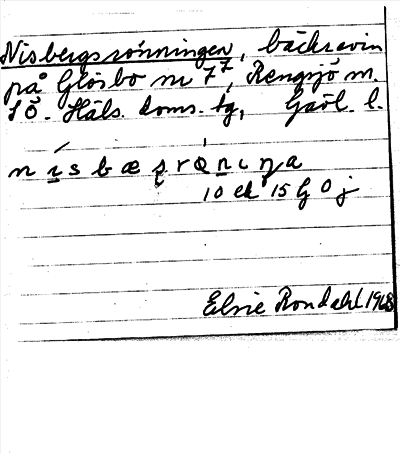 Nisbergsrönningen, bäckravin
på Glösbo nr 7⁷, Rengsjö sn.
SÖ. Häls. doms. tg, Gävl. l.
10 ek 15 G O j
Elsie Rondahl 1968